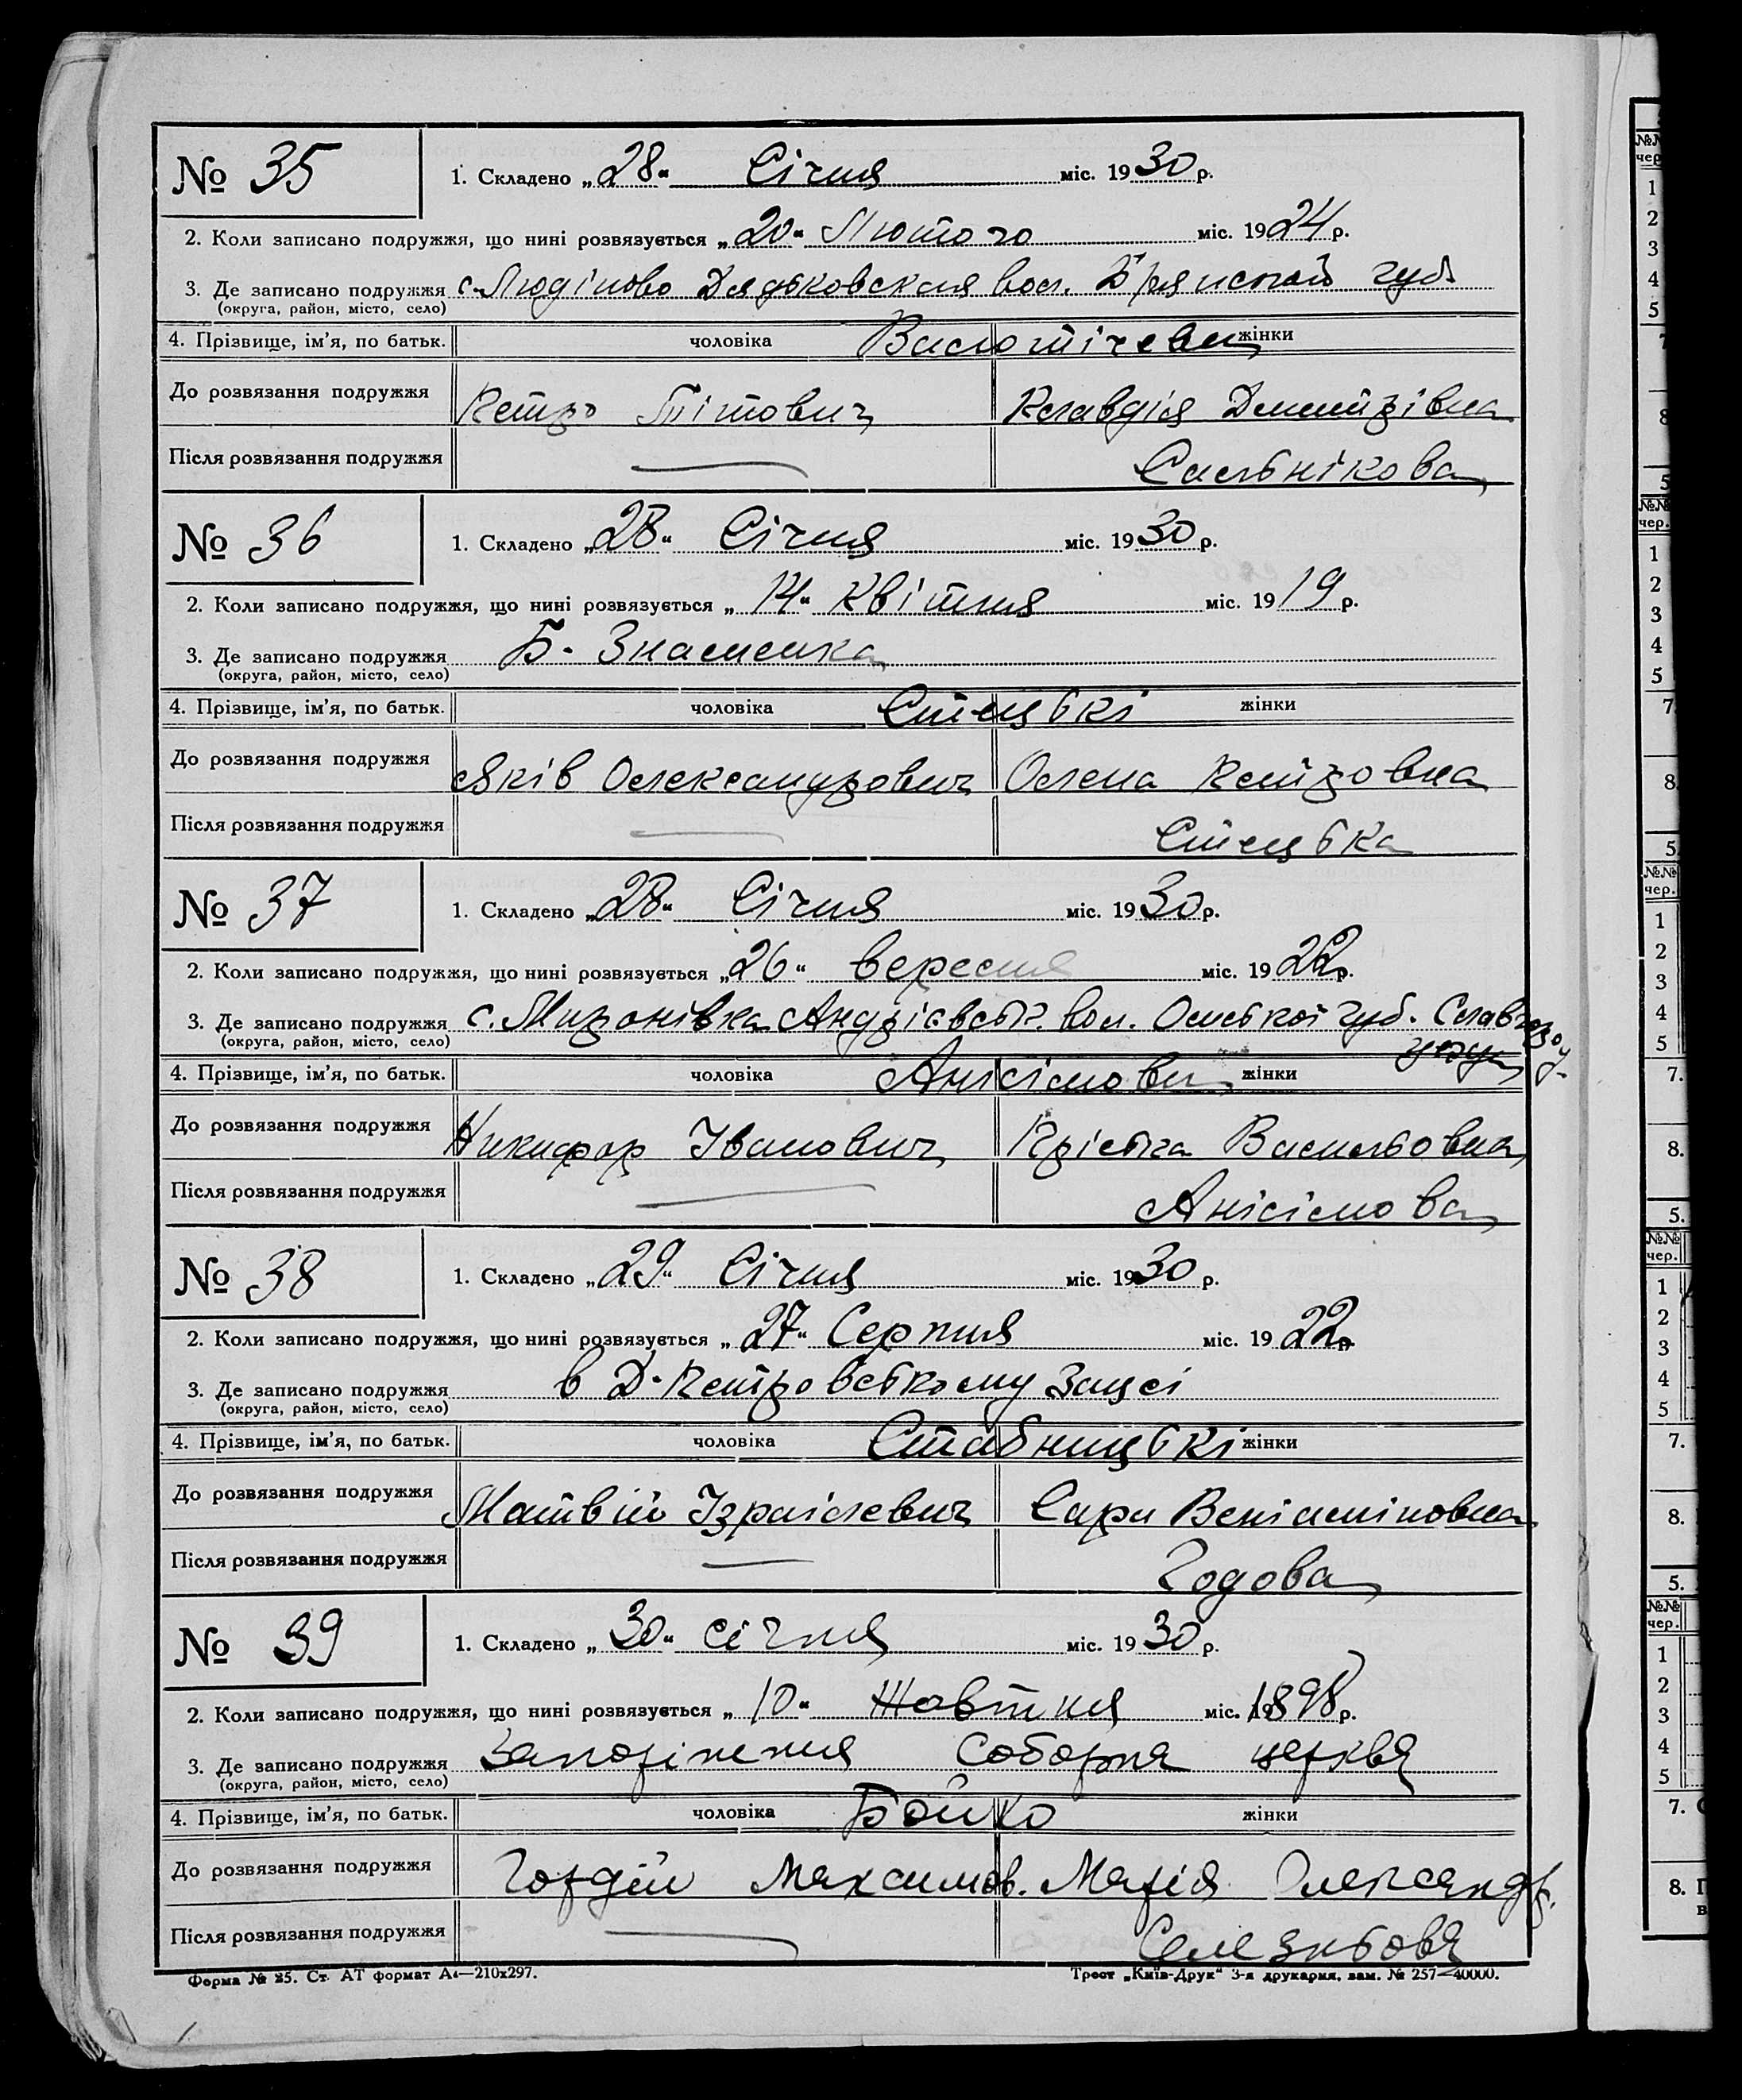 № 35
1. Складено „28“ Січня міс. 1930 р.
2. Коли записано подружжя, що нині розвязується „20“ Лютого міс. 1924 р.
3. Де записано подружжя с. Людіново Дядьковская вол. Брянской губ.
(округа, район, місто, село)
4. Прізвище, ім’я, по батьк. чоловіка жінки
До розвязання подружжя Петро Тітович Клавдія Дмитрівна
Після розвязання подружжя — Сальнікова
№ 36
1. Складено „28“ Січня міс. 1930 р.
2. Коли записано подружжя, що нині розвязується „14“ Квітня міс. 1919 р.
3. Де записано подружжя Б. Знаменка
(округа, район, місто, село)
4. Прізвище, ім’я, по батьк. чоловіка Стецькі жінки
До розвязання подружжя Яків Олександрович Олена Петровна
Після розвязання подружжя — Стецька
№ 37
1. Складено „28“ Січня міс. 1930 р.
2. Коли записано подружжя, що нині розвязується „26“ вересня міс. 1922 р.
3. Де записано подружжя с. Миронівка Андріївськ. вол. Омської губ. Славгород.
(округа, район, місто, село)
4. Прізвище, ім’я, по батьк. чоловіка Анісімови жінки
До розвязання подружжя Никифор Іванович Васильовна
Після розвязання подружжя — Анісімова
№ 38
1. Складено „29“ Січня міс. 1930 р.
2. Коли записано подружжя, що нині розвязується „27“ Серпня міс. 1922 р.
3. Де записано подружжя в Д-Петровському Загсі
(округа, район, місто, село)
4. Прізвище, ім’я, по батьк. чоловіка Стабницькі жінки
До розвязання подружжя Матвій Ізраілевич Сара Веніаміновна
Після розвязання подружжя — Годова
№ 39
1. Складено „30“ січня міс. 1930 р.
2. Коли записано подружжя, що нині розвязується „10“ Жовтня міс. 1898 р.
3. Де записано подружжя Запоріжжя Соборна церква
(округа, район, місто, село)
4. Прізвище, ім’я, по батьк. чоловіка Бойко жінки
До розвязання подружжя Гордій Максимов. Марія Олександр.
Після розвязання подружжя — Селезньова
Форма № 25. Ст. АТ формат А4—210х297.
Трест „Київ-Друк“ 3-я друкарня, зам. № 257—40000.